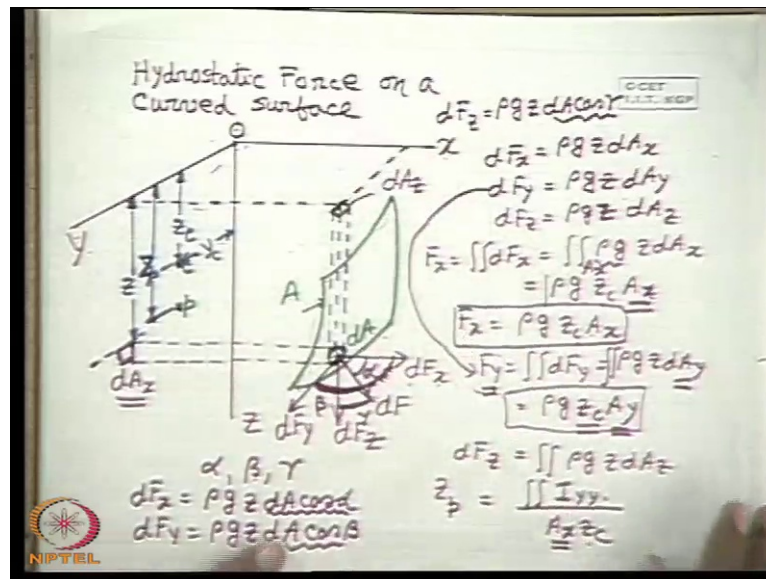 Hydrostatic Force on a
Curved surface
C CET
I.I.T. KGP
dF_z = ρg z dA cosγ
dF_x = ρg z dA_x
dF_y = ρg z dA_y
dF_z = ρg z dA_z
F_x = ∬dF_x = ∬_{A_x} ρg z dA_x
= ρg z_c A_x
F_x = ρg z_c A_x
F_y = ∬dF_y = ∬ρg z dA_y
= ρg z_c A_y
dF_z = ∬ ρg z dA_z
z_p = ∬ I_yy. / A_x z_c
O
x
y
z
z
z_c
c
p
A
dA_z
dA
dA_x
α
β
γ
dF_x
dF
dF_y
dF_z
α, β, γ
dF_x = ρg z dA cosα
dF_y = ρg z dA cosβ
NPTEL